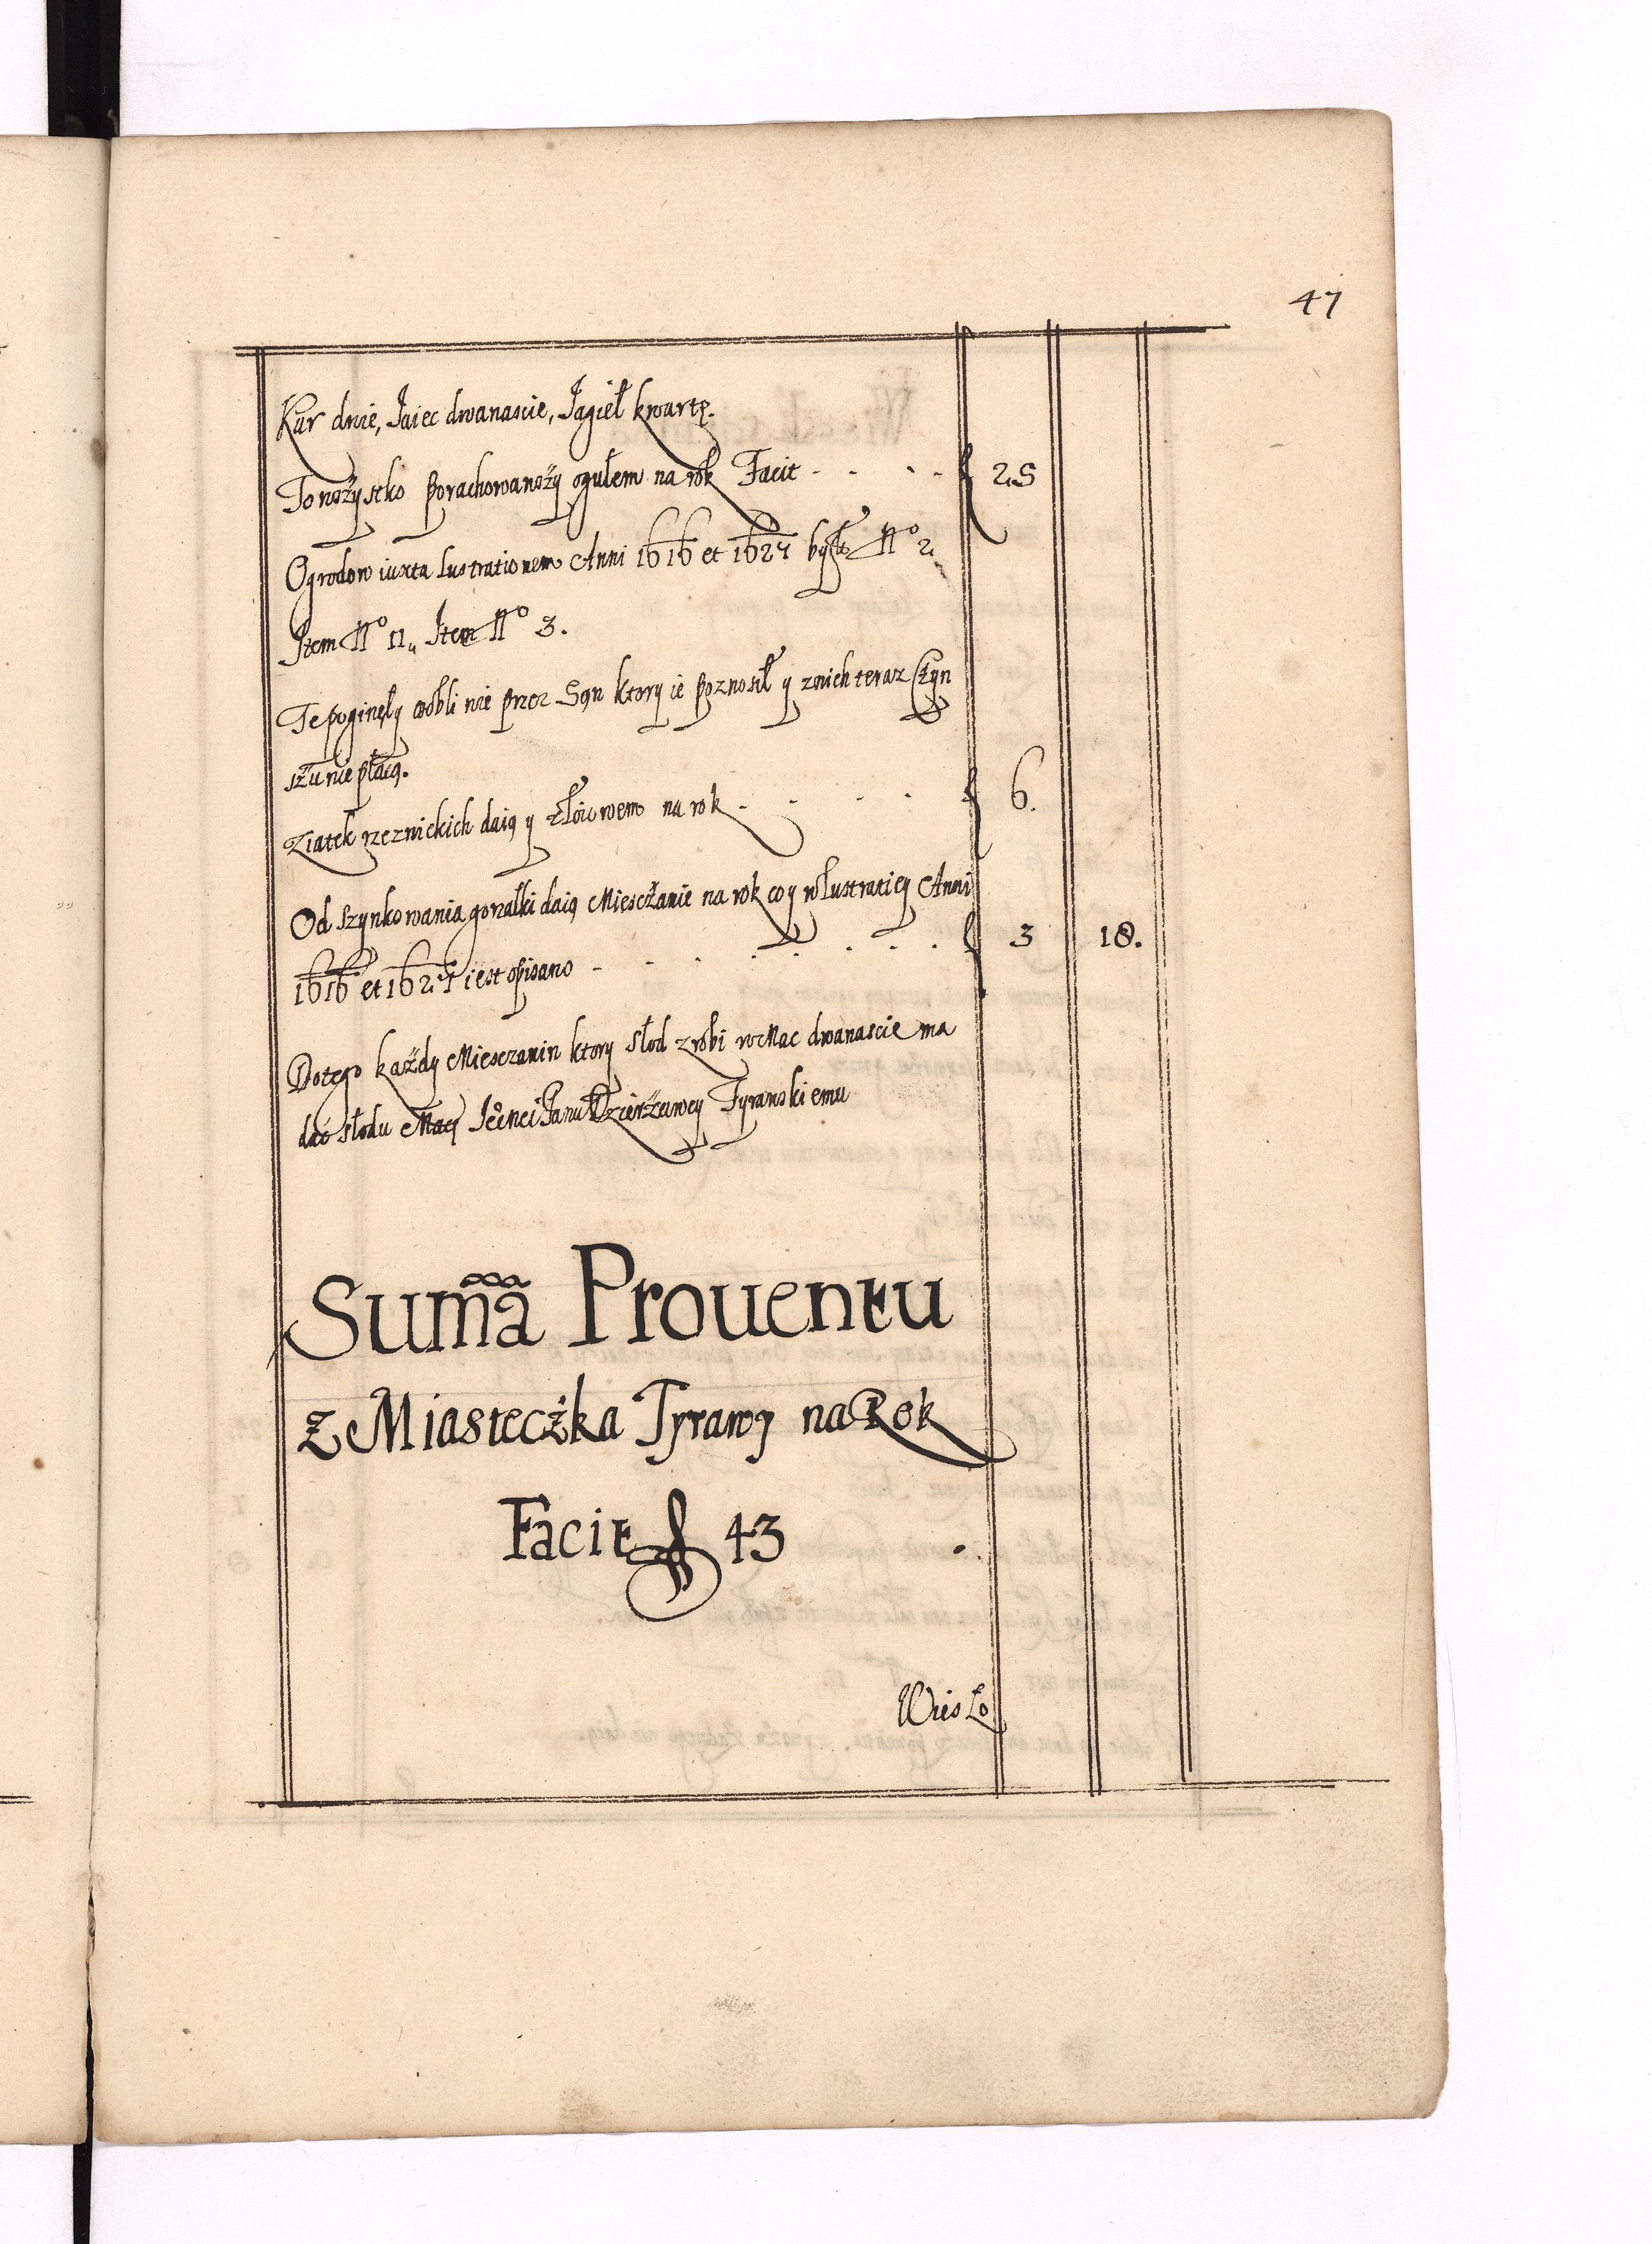 47
Kur dwie, Jaiec dwanascie, Jagieł kwartę.
To wszystko porachowawszy ogułem na rok Facit - - - - 25
Ogrodow iuxta Lustrationem Anni 1616 et 1627 było Nº 2.
Item Nº 11, Item Nº 3.
Te poginęły wobli nie przez San ktory ie poznosił y znich teraz Czyn
szu nie płacą.
Ziatek rzeznickich daią y złoiowem na rok - - - - 6.
Od szynkowania gorzałki daią Miesczanie na rok co y w Lustratiey Anni
1616 et 1627 iest opisano - - - - - - - 3 18.
Do tego każdy Miesczanin ktory słod zrobi w Mac dwanascie ma
dać słodu Macę Panu Dzierżawcy Tyrawskiemu
Summa Prouentu
z Miasteczka Tyrawy na Rok
Facit f 43 .
Wies Lo